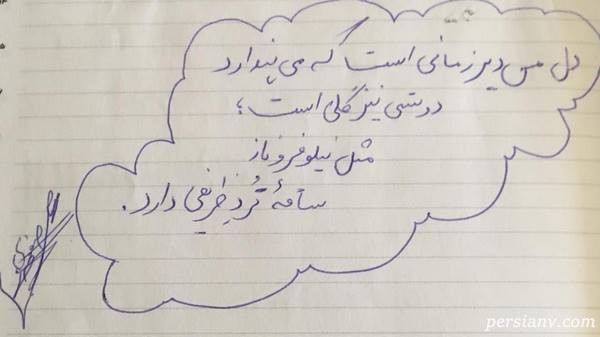 دل من دیر زمانی است که می پندارد
دوستی نیز گلی است؛
مثل نیلوفر و ناز
ساقهٔ تُردِ ظریفی دارد.
persianv.com